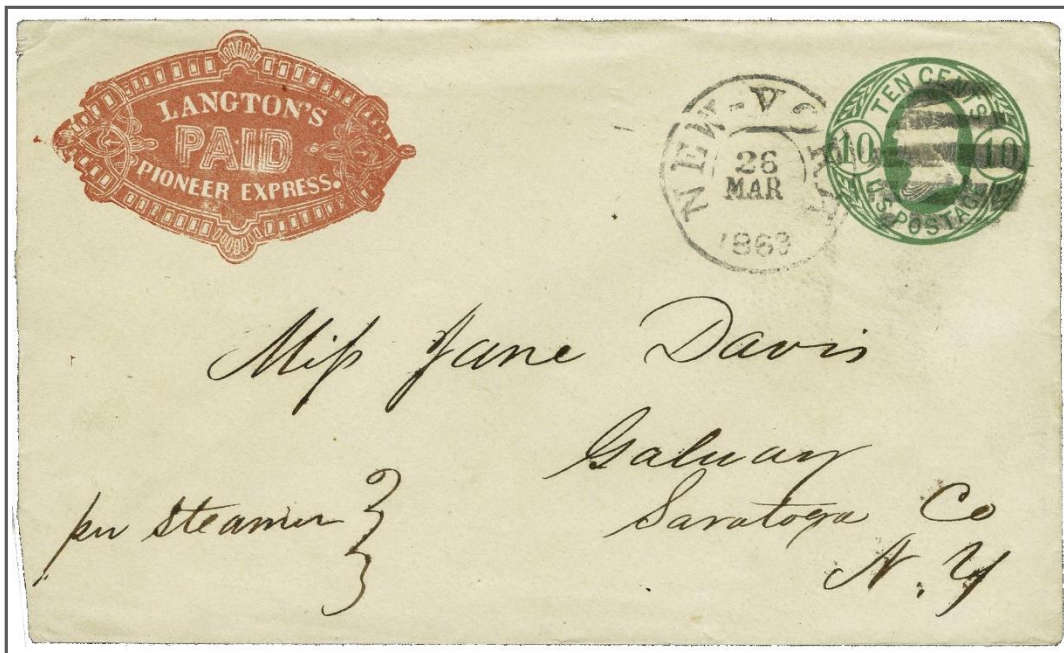 LANGTON'S
PAID
PIONEER EXPRESS.
NEW-YORK
26
MAR
1863
TEN CENTS
10 10
U.S. POSTAGE
Miss Jane Davis
Galway
Saratoga Co
N. Y
per steamer